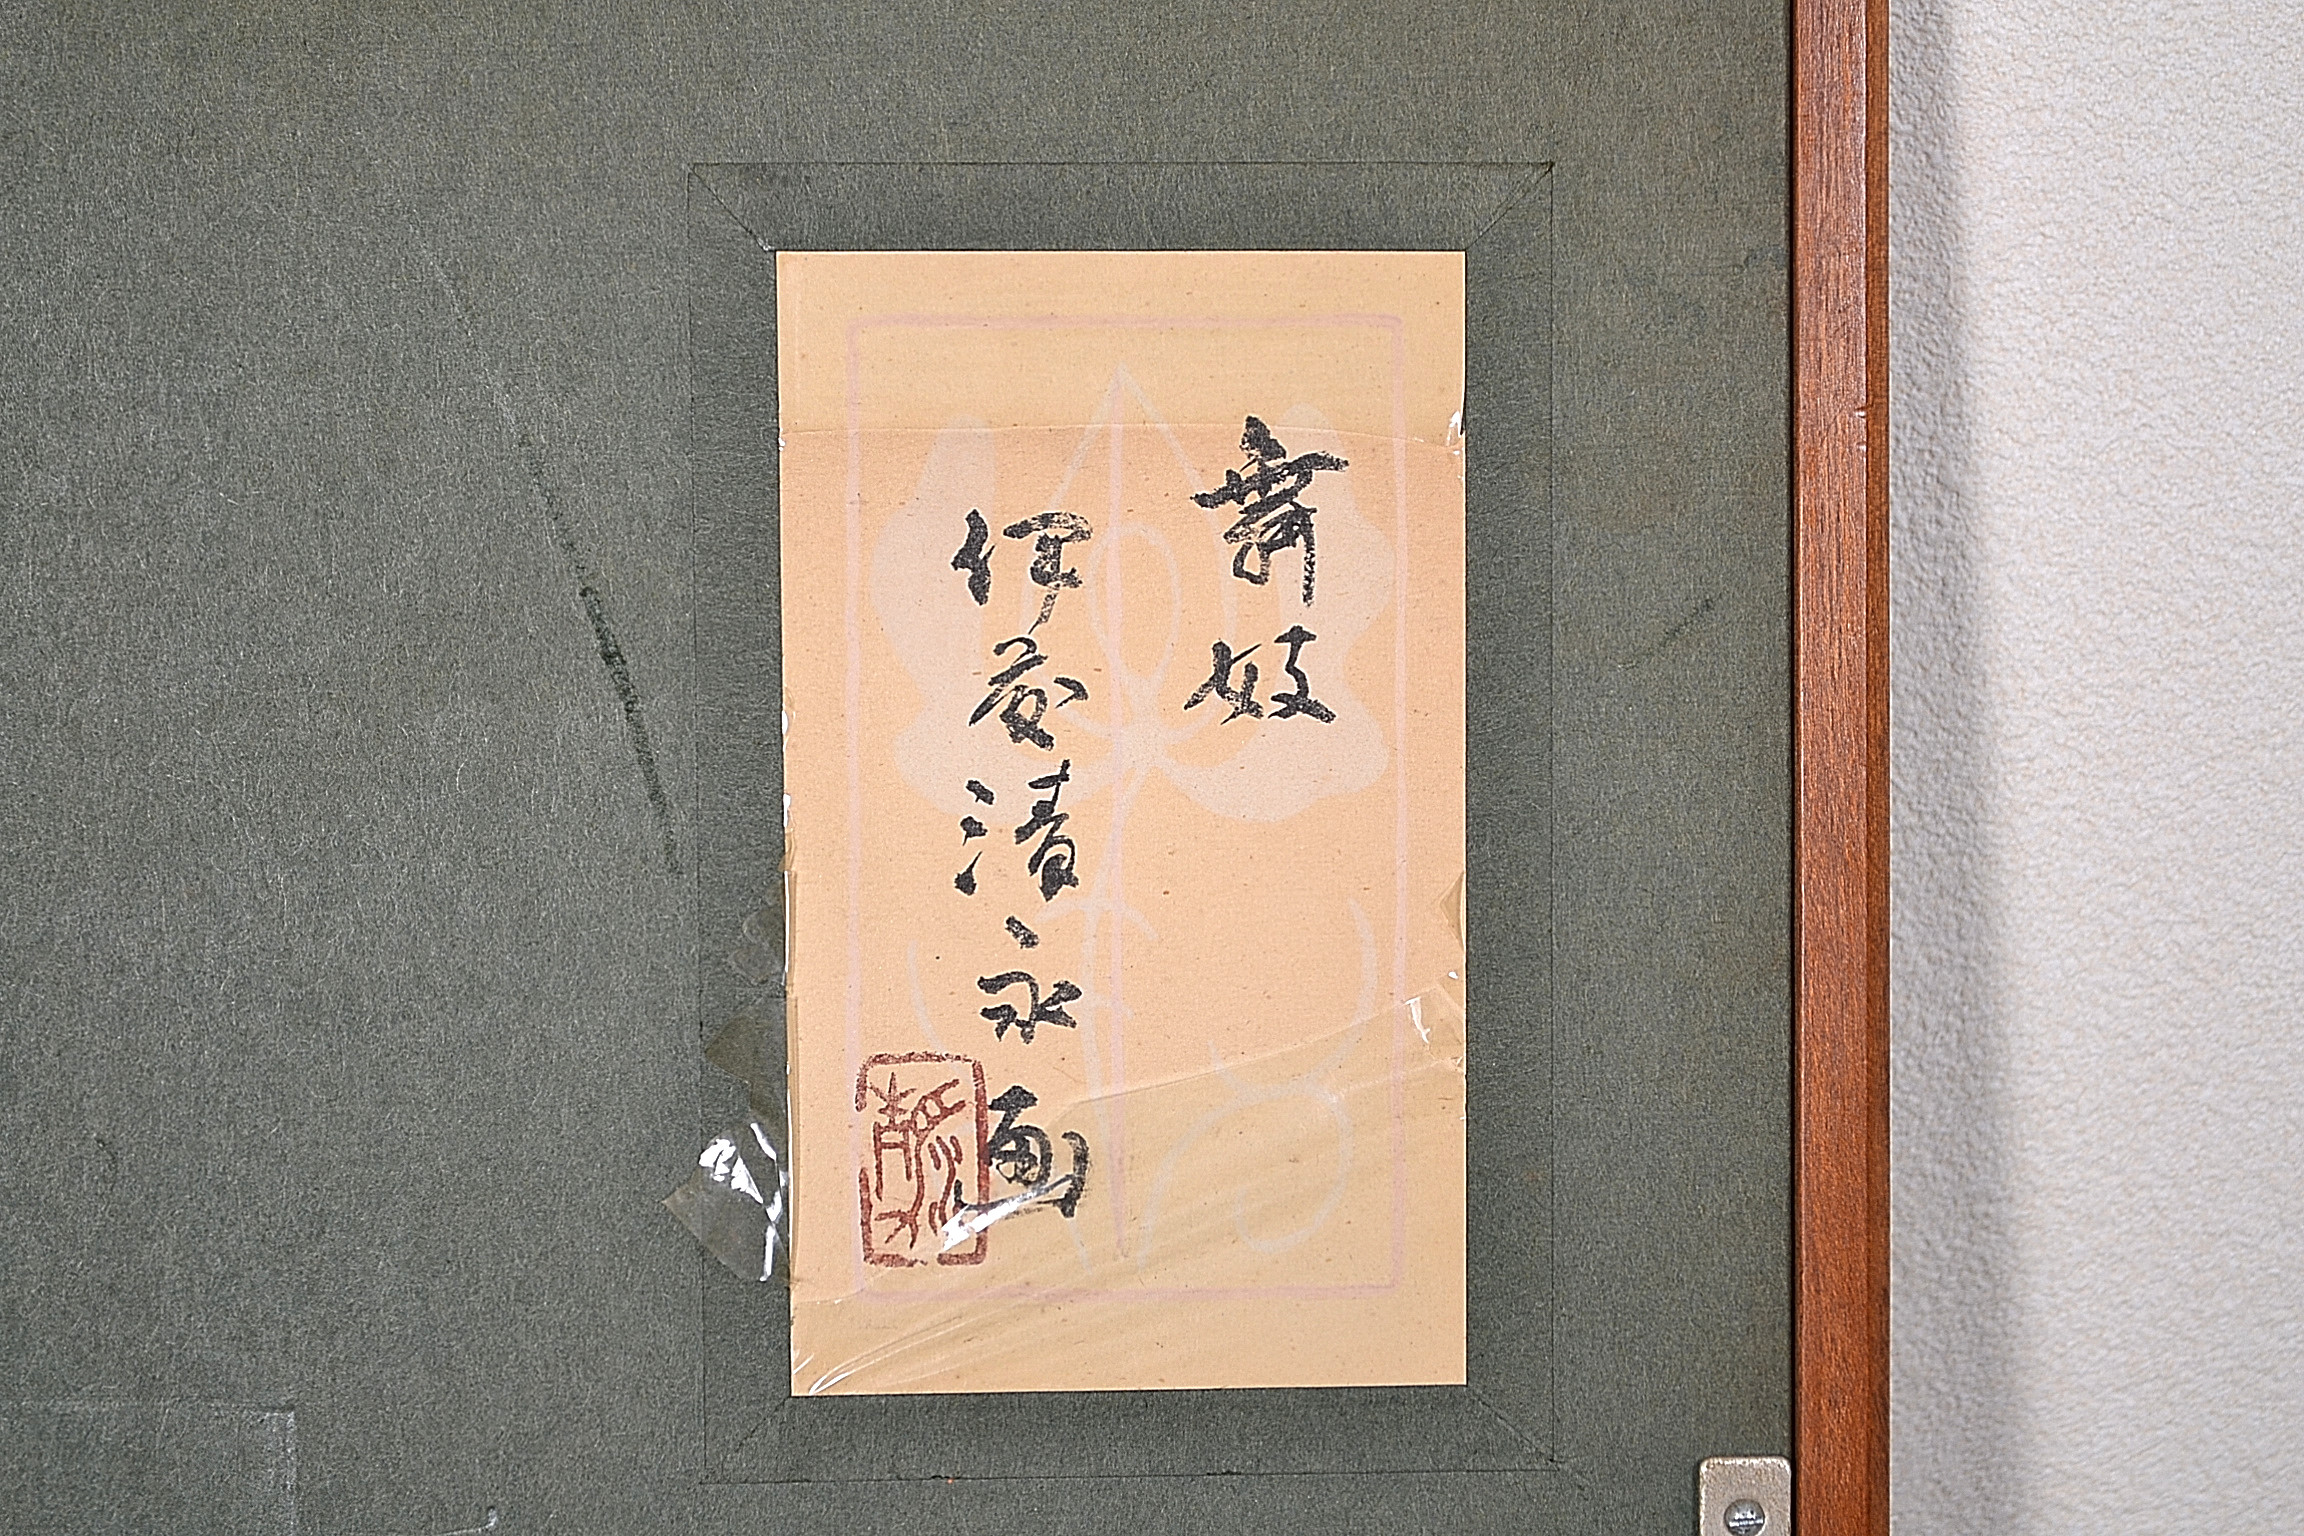 舞妓
伊藤清永画